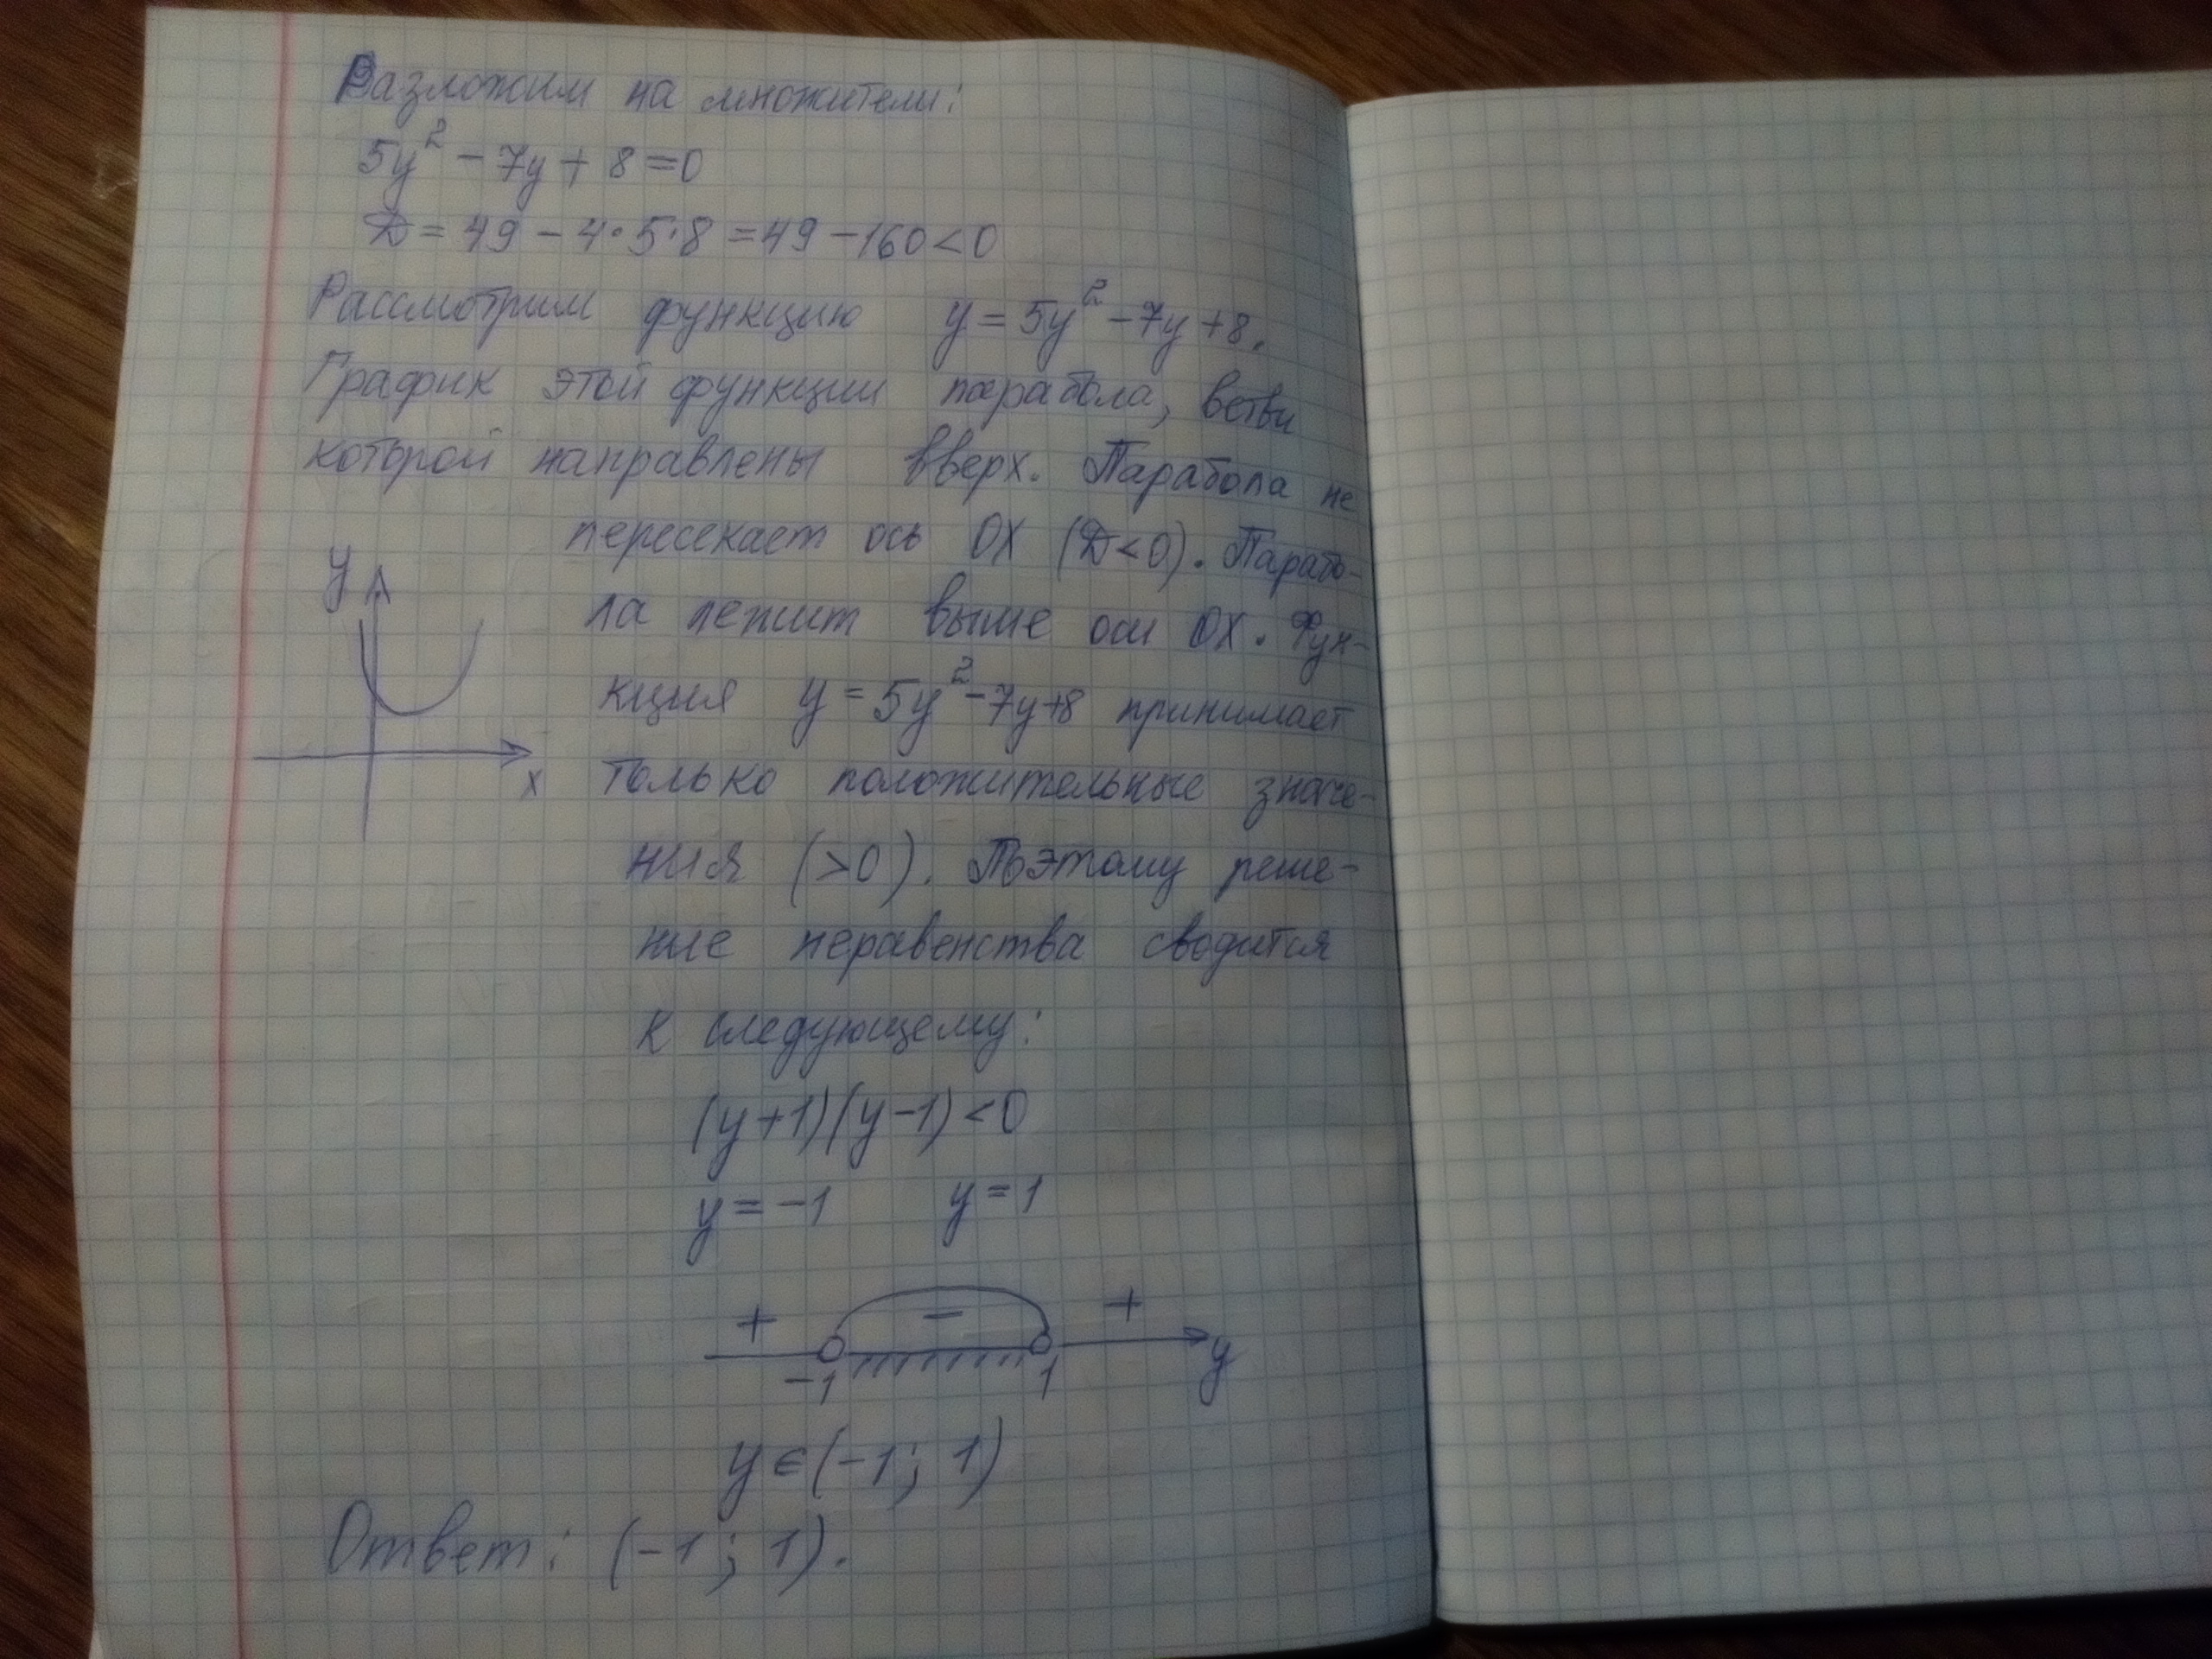 Разложим на множители:
5y² - 7y + 8 = 0
D = 49 - 4·5·8 = 49 - 160 < 0
Рассмотрим функцию y = 5y² - 7y + 8.
График этой функции парабола, ветви
которой направлены вверх. Парабола не
пересекает ось OX (D<0). Парабо-
ла лежит выше оси OX. Фун-
кция y = 5y² - 7y + 8 принимает
только положительные значе-
ния (>0). Поэтому реше-
ние неравенства сводится
к следующему:
(y+1)(y-1) < 0
y = -1 y = 1
y
x
+ - +
-1 1 y
y ∈ (-1; 1)
Ответ: (-1; 1).